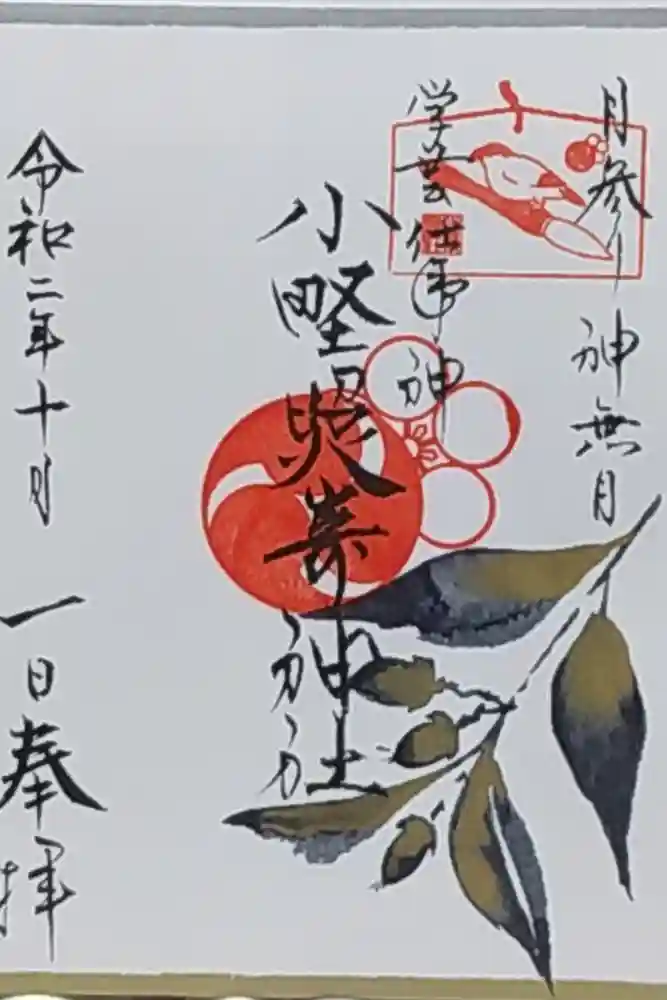 月参り 神無月
学芸仕事神
小野照嵜神社
令和二年十月一日奉拝